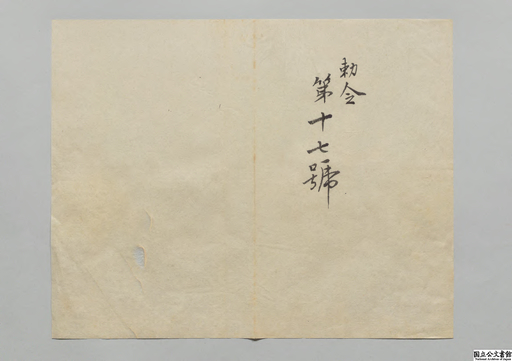 勅令
第十七號
国立公文書館
National Archives of Japan